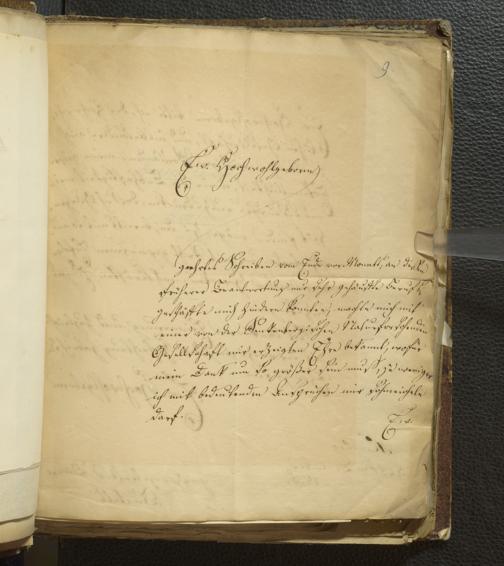 9.
Ew. Hochwohlgeboren
geehrtes Schreiben vom Ende vor. Monats, an dessen
früherer Beantwortung nur sehr gehäufte Berufs-
geschäfte mich hindern konnten, machte mich mit
einer von der Senkenbergischen Naturforschenden
Gesellschaft mir erzeigten Ehre bekannt, wofür
mein Dank um so größer sein muß, je weniger
ich mit bedeutenden Ansprüchen mir schmeicheln
darf.
Ew.